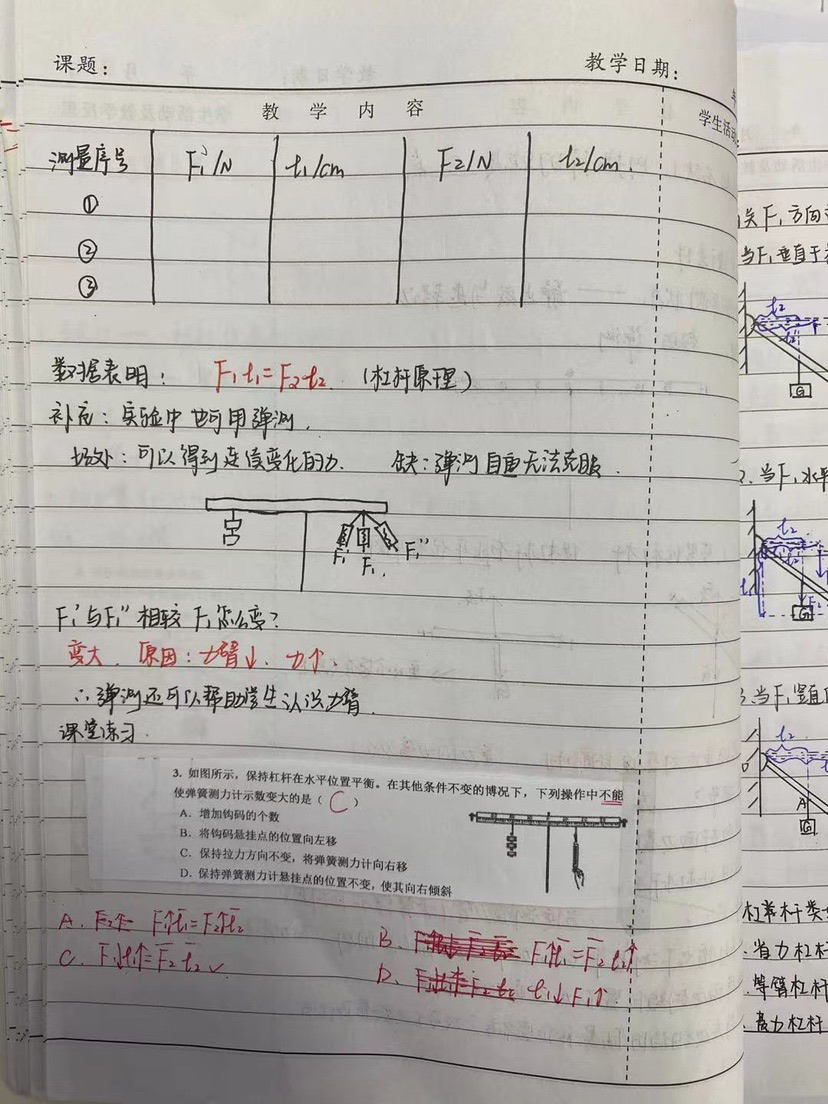 课题：
教学日期：
教 学 内 容
学生活动
测量序号 F₁/N l₁/cm F₂/N l₂/cm
①
②
③
数据表明： F₁l₁=F₂l₂ （杠杆原理）
补充：实验中也可用弹测。
好处：可以得到连续变化的力. 缺：弹测自重无法克服.
F₁' F₁ F₁''
F₁'与F₁''相较F₁怎么变？
变大. 原因：力臂↓. 力↑.
∴弹测还可以帮助学生认识力臂.
课堂练习.
3. 如图所示，保持杠杆在水平位置平衡。在其他条件不变的博况下，下列操作中不能
使弹簧测力计示数变大的是（ C ）
A．增加钩码的个数
B．将钩码悬挂点的位置向左移
C．保持拉力方向不变，将弹簧测力计向右移
D．保持弹簧测力计悬挂点的位置不变，使其向右倾斜
A. F₁↑l₁=F₂↑l₂
B. F₁↑l₁=F₂l₂↑
C. F₁↓l₁↑=F₂l₂✓
D. l₁↓F₁↑.
关F₁方向
当F₁垂直于
l₂
G
2.当F₁水平
l₂
G
3.当F₁竖直
l₂
A
G
杠杆类
省力杠杆
等臂杠杆
费力杠杆